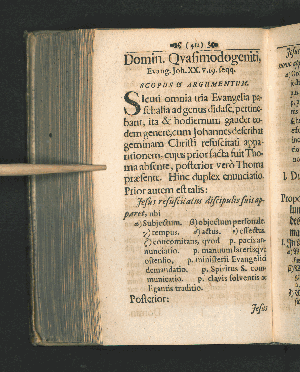 (411)
Domin. Qvasimodogeniti,
Evang. Joh. XX. v. 19. seqq.
SCOPUS & ARGUMENTUM.
Sicuti omnia tria Evangelia pa-
schalia ad genus didasc. pertine-
bant, ita & hodiernum gaudet eo-
dem genere; cum Johannes describit
geminam Christi resuscitati appa-
ritionem, eque prior facta fuit Tho-
ma absente, posterior verò Thoma
præsente. Hinc duplex enunciatio.
Prior autem est talis:
Jesus resuscitatus discipulis suis ap-
paret, ubi
Subjectum. objectum personale.
tempus. actus. effecta.
concomitans, qvod p. pacis an-
nunciatio. p. manuum laterisqve
ostensio, p. ministerii Evangelici
demandatio. p. Spiritus S. com-
municatio. p. clavis solventis &
ligantis traditio.
Posterior:
Jesus